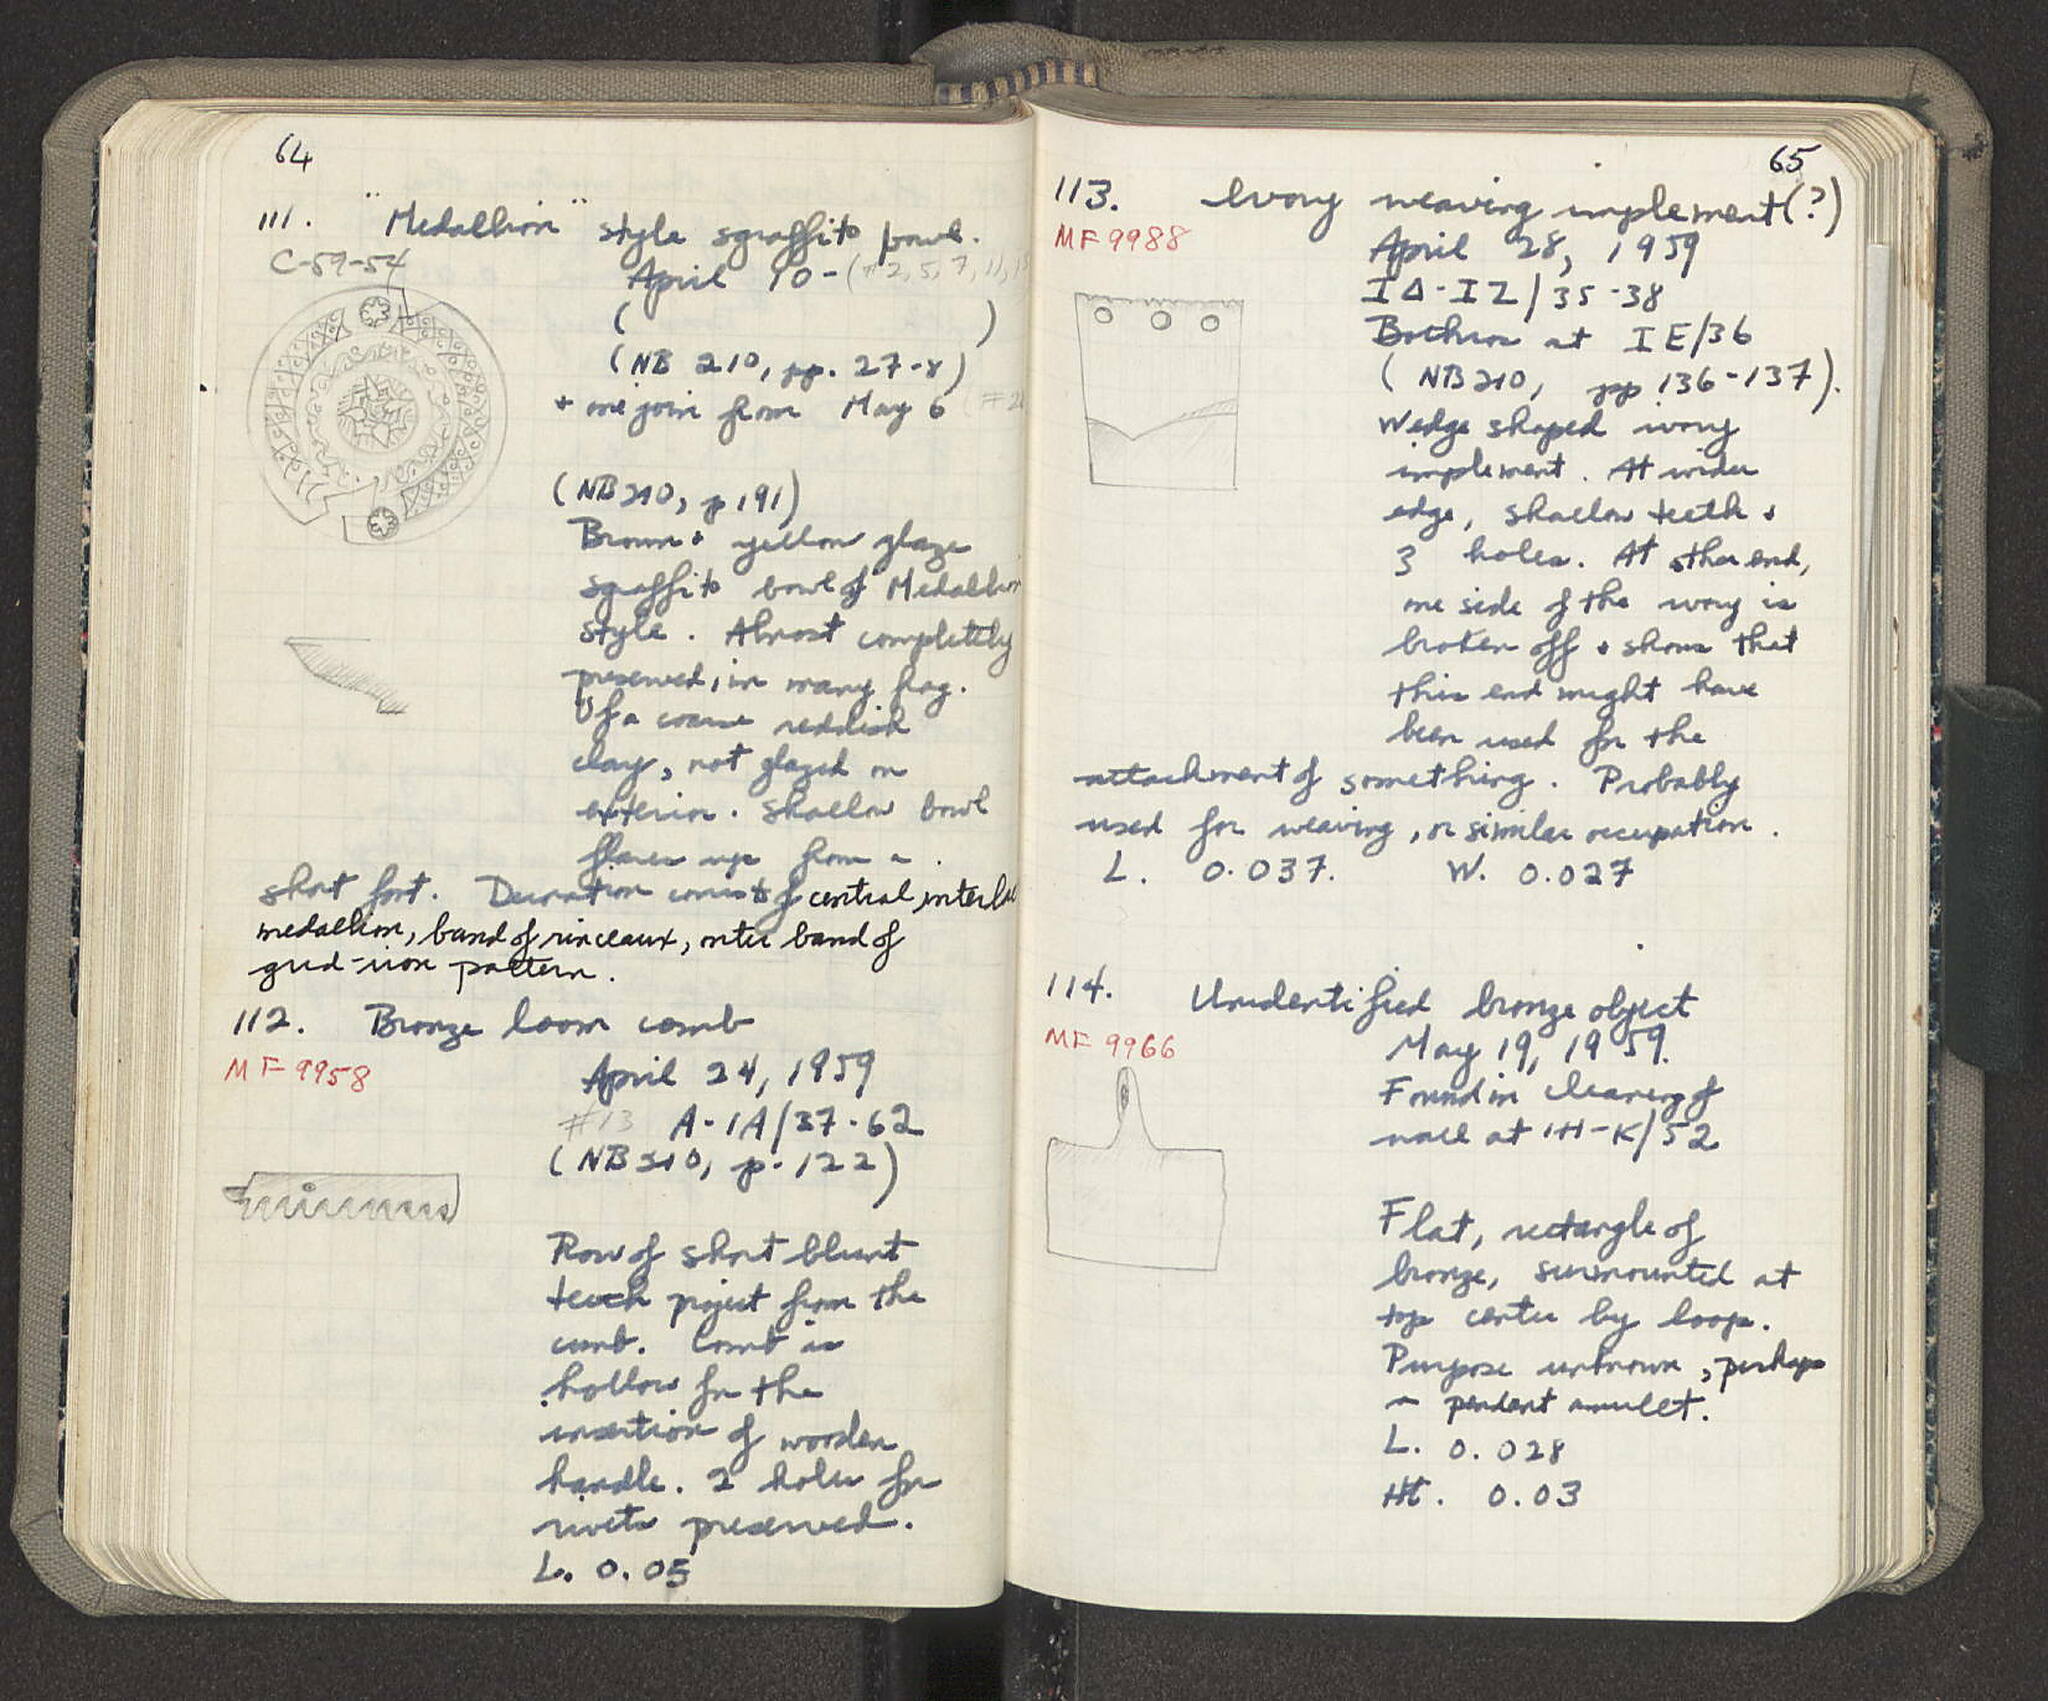 64
111. "Medallion" style sgraffito bowl.
C-59-54
April 10 - (#2, 5, 7, 11, 
( )
(NB 210, pp. 27-8)
+ one join from May 6 (#2
(NB 210, p 191)
Brown + yellow glaze
sgraffito bowl of Medallion
style. Almost completely
preserved, in many frag.
Of a coarse reddish
clay, not glazed on
exterior. Shallow bowl
flares up from a
short foot. Decoration consists of central interlace
medallion, band of rinceaux, outer band of
grid-iron pattern.
112. Bronze loom comb
MF 9958
April 24, 1959
#13 A-IA/37-62
(NB 210, p. 122)
Row of short blunt
teeth project from the
comb. Comb is
hollow for the
insertion of wooden
handle. 2 holes for
rivets preserved.
L. 0.05
65
113. Ivory weaving implement(?)
MF 9988
April 28, 1959
IΔ-IZ/35-38
Bothros at IE/36
(NB 210, pp 136-137).
Wedge shaped ivory
implement. At wider
edge, shallow teeth +
3 holes. At other end,
one side of the ivory is
broken off + shows that
this end might have
been used for the
attachment of something. Probably
used for weaving, or similar occupation.
L. 0.037. W. 0.027
114. Unidentified bronze object
MF 9966
May 19, 1959.
Found in clearing of
wall at IH-K/52
Flat, rectangle of
bronze, surmounted at
top center by loop.
Purpose unknown, perhaps
a pendant amulet.
L. 0.028
Ht. 0.03